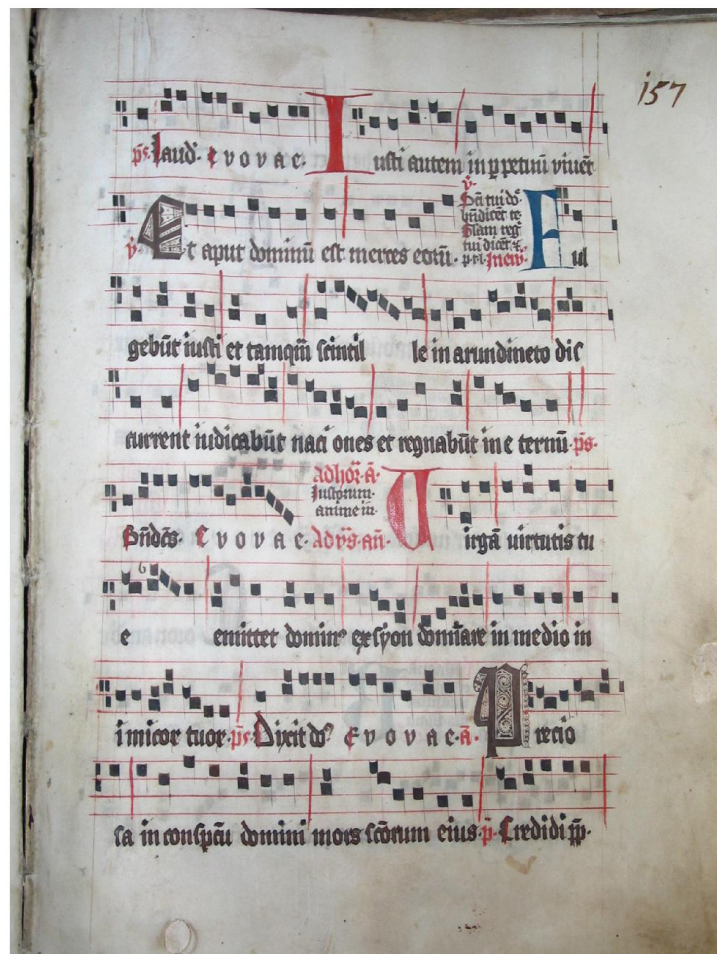 157
ps. Laud. Evovae. Iusti autem in ppetuū viuēt
v. Et aput dominū est merces eorū.
v. Scī tui dō
bn̄dicēt te
Glam reḡ
tui dicēt
In ew. Ful
gebūt iusti et tamqm̄ scintil le in arundineto dis
current iudicabūt naci ones et regnabūt in e ternū ps.
Bn̄dc̄s Evovae.
ad hor. ā.
Iustorum
anime in.
Ad vs. an̄. Uirgā uirtutis tu
e emittet domin⁹ ex syon dominare in medio in
i micor tuor. ps. Dixit do⁹ Evovae. ā. Precio
sa in conspcū domini mors scōrum eius p̄. Credidi pp̄.